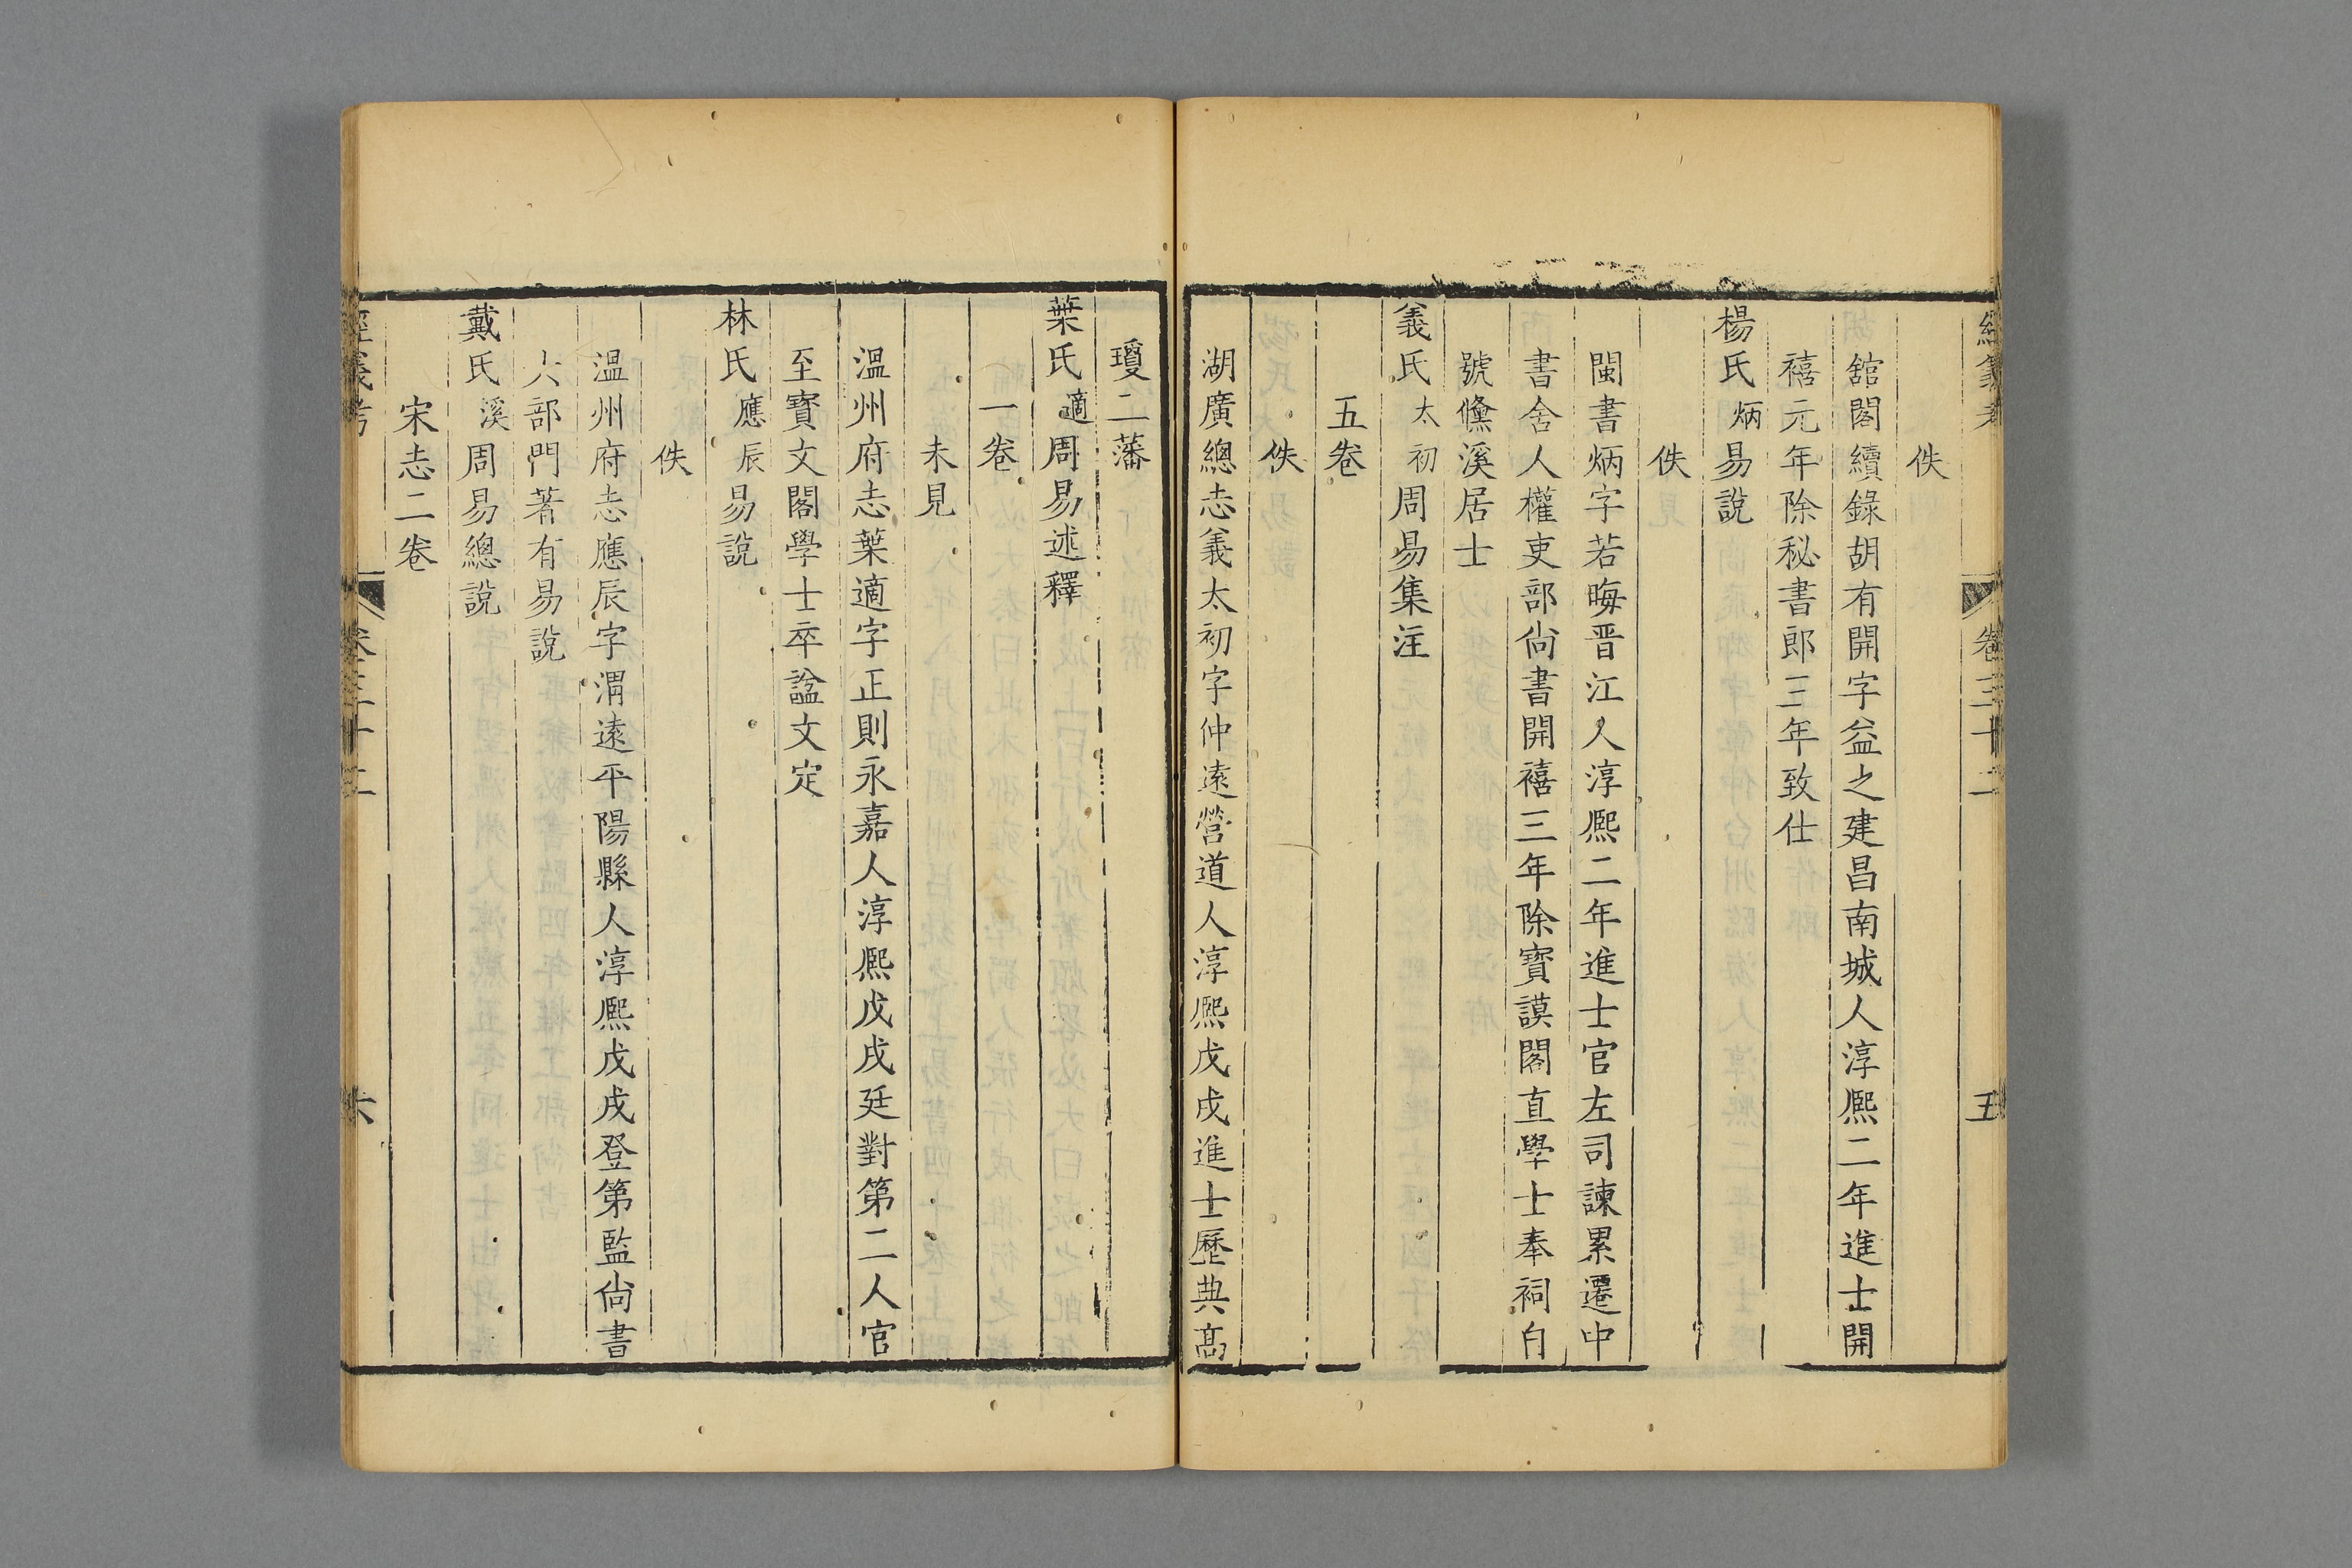 經義考 卷三十二 五
佚
舘閣續錄胡有開字益之建昌南城人淳熙二年進士開
禧元年除秘書郎三年致仕
楊氏炳易說
佚
閩書炳字若晦晋江人淳熙二年進士官左司諫累遷中
書舍人權吏部尚書開禧三年除寶謨閣直學士奉祠自
號憽溪居士
義氏太初周易集注
五卷
佚
湖廣總志義太初字仲遠營道人淳熙戊戌進士歷典高
瓊二藩
葉氏適周易述釋
一卷
未見
溫州府志葉適字正則永嘉人淳熙戊戌廷對第二人官
至寳文閣學士卒諡文定
林氏應辰易說
佚
溫州府志應辰字渭遠平陽縣人淳熙戊戌登第監尚書
六部門著有易說
戴氏溪周易總說
宋志二卷
經義考 卷三十二 六